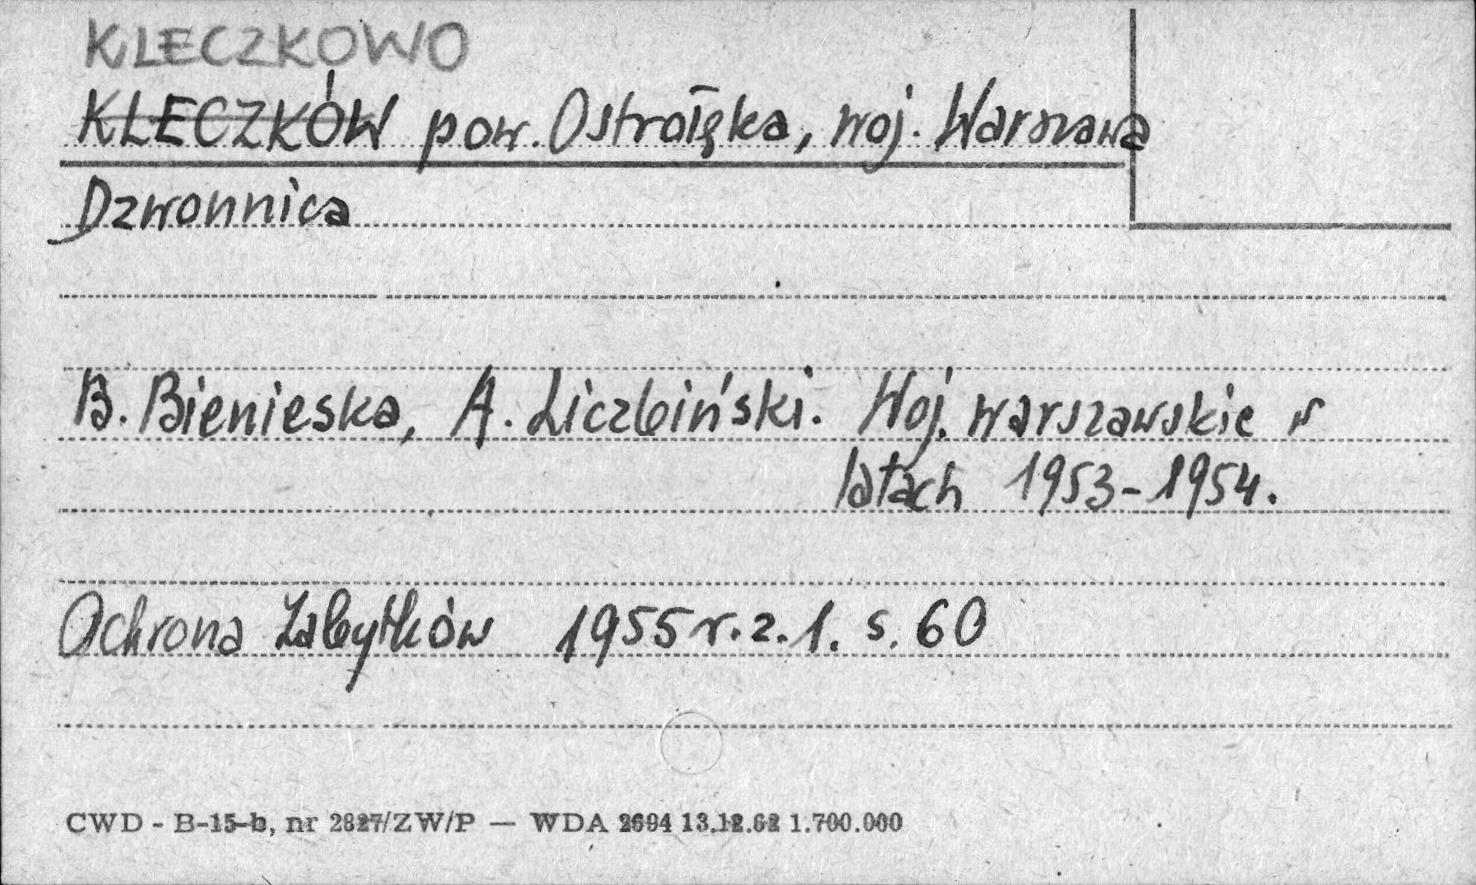 KLECZKOWO
KLECZKÓW pow. Ostrołęka, woj. Warszawa
Dzwonnica
B. Bienieska, A. Liczbiński. Woj. warszawskie w
latach 1953-1954.
Ochrona Zabytków 1955 r. z. 1. s. 60
CWD - B-15-b, nr 2827/ZW/P — WDA 2694 13.12.62 1.700.000